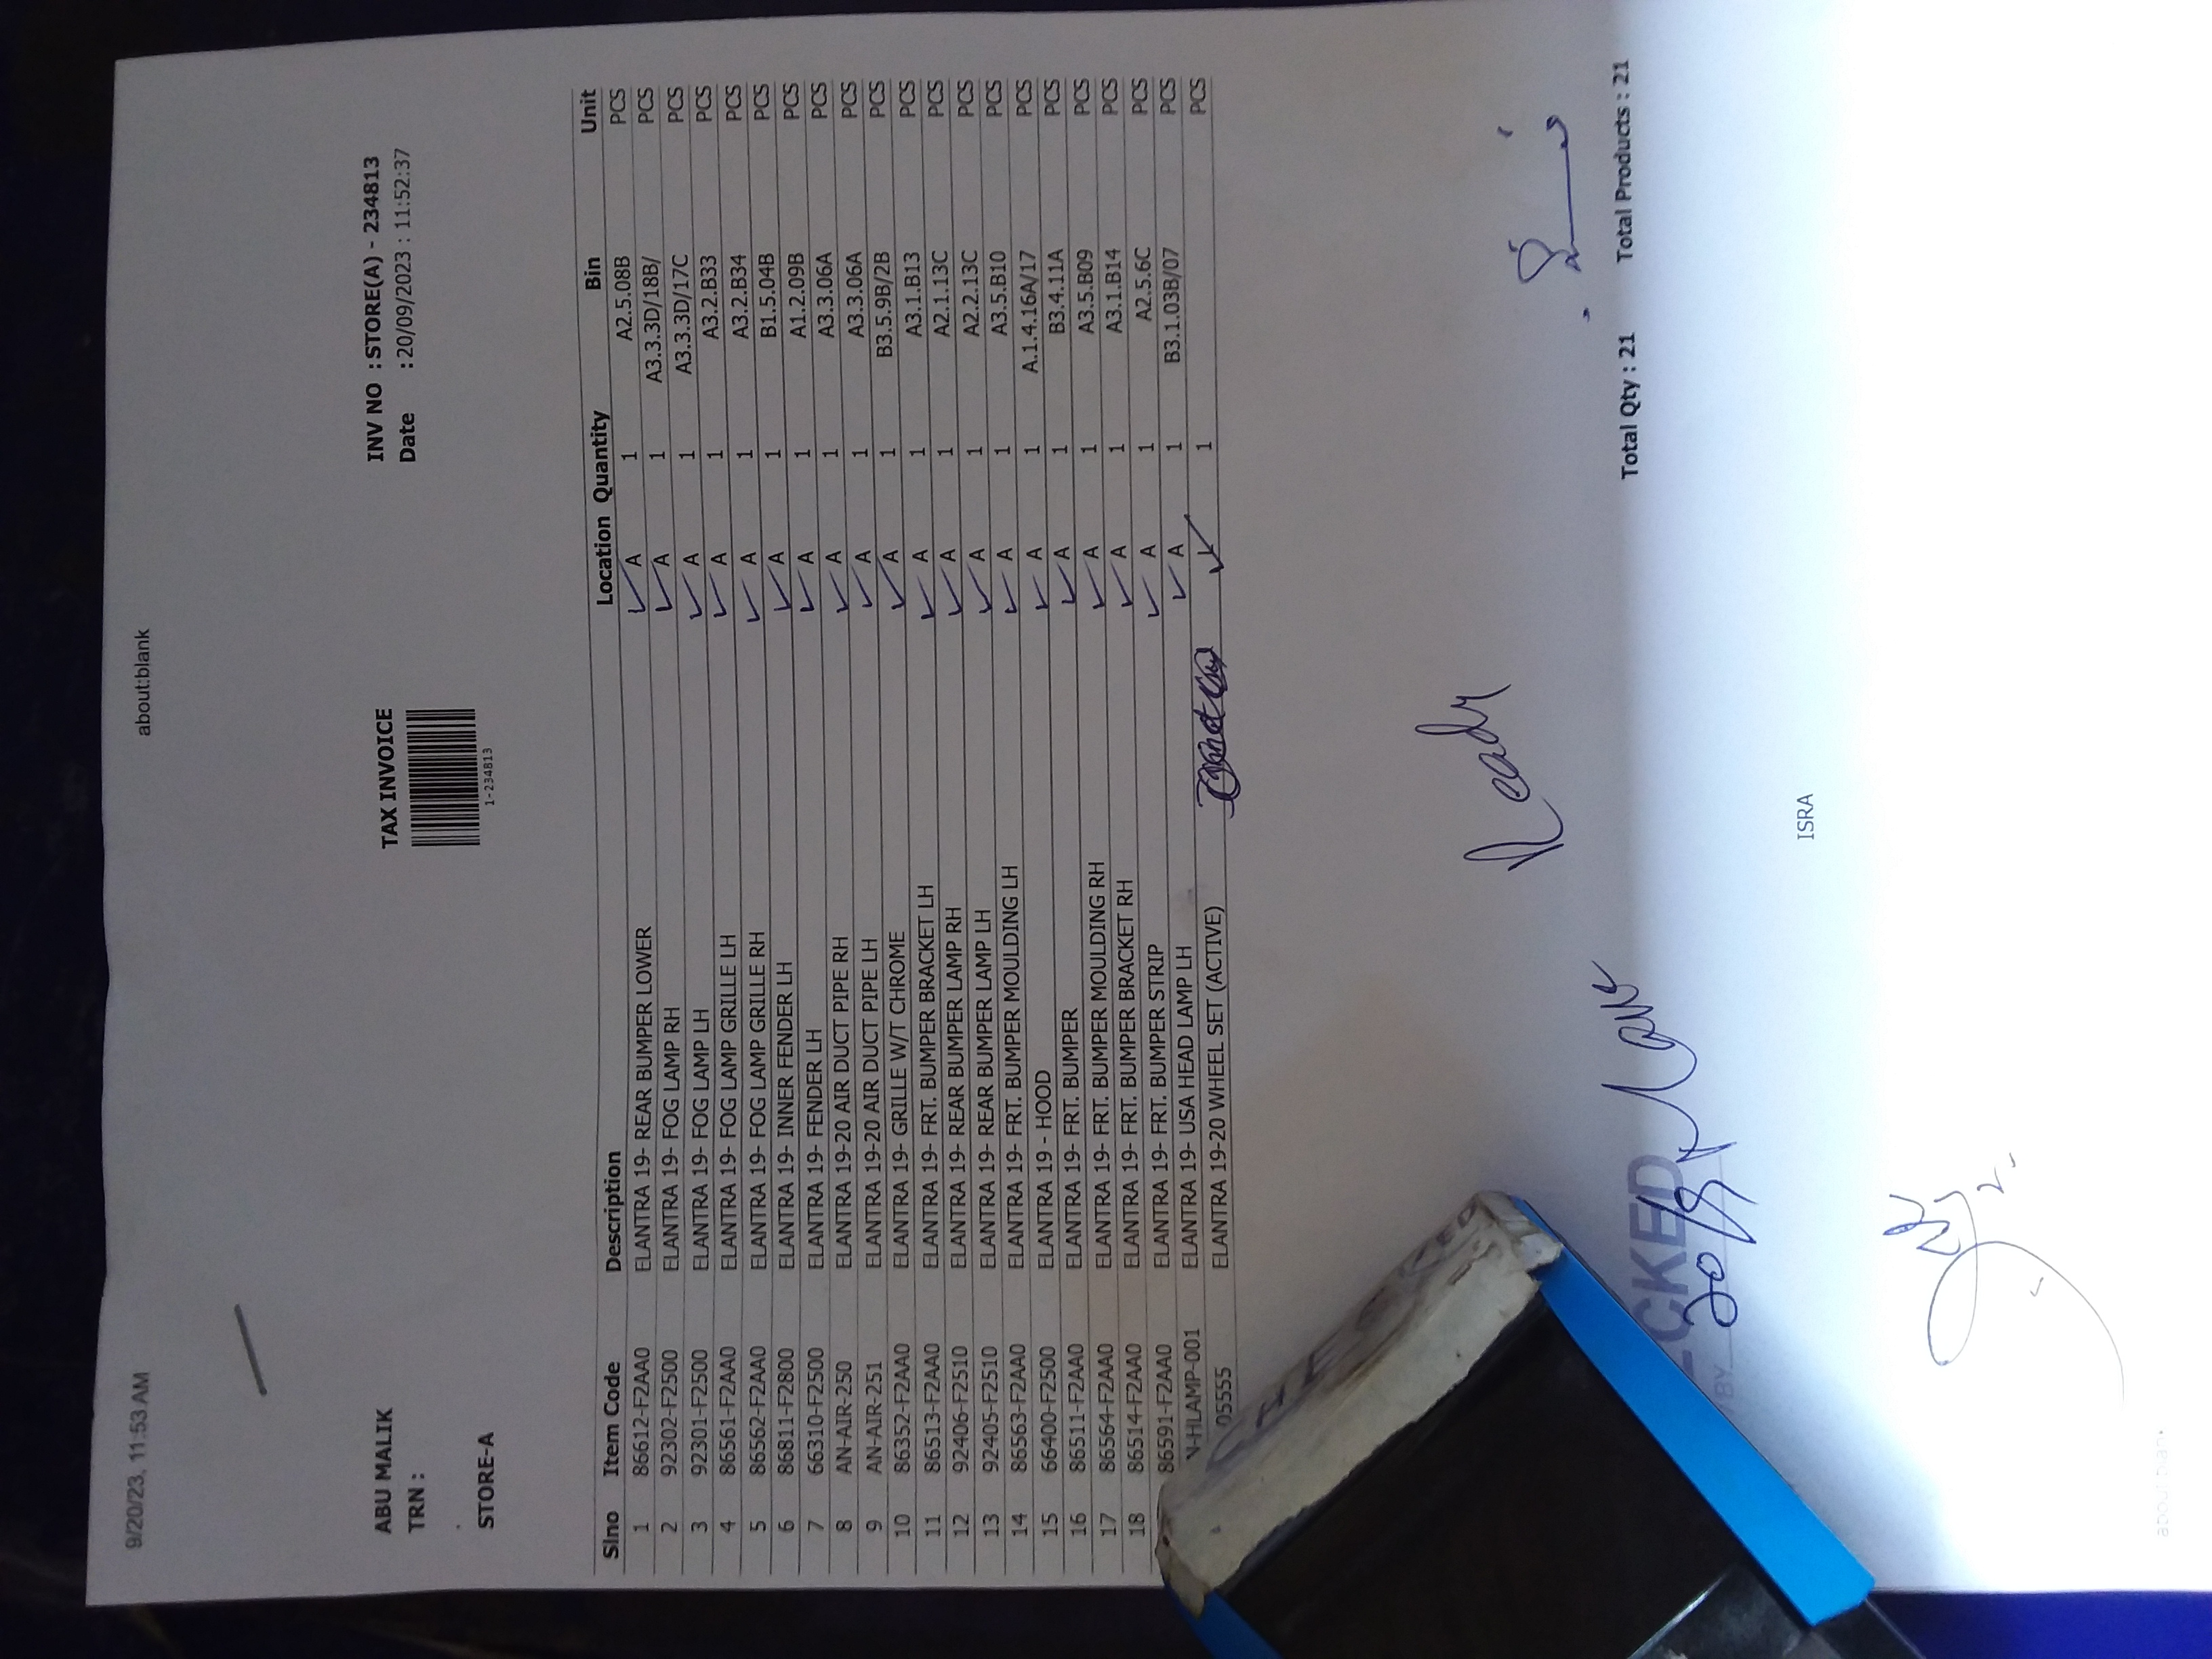 9/20/23, 11:53 AM about:blank
TAX INVOICE
ABU MALIK INV NO : STORE(A) - 234813
TRN : Date : 20/09/2023 : 11:52:37
1-234813
STORE-A
Slno Item Code Description Location Quantity Bin Unit
1 86612-F2AA0 ELANTRA 19- REAR BUMPER LOWER A 1 A2.5.08B PCS
2 92302-F2500 ELANTRA 19- FOG LAMP RH A 1 A3.3.3D/18B/ PCS
3 92301-F2500 ELANTRA 19- FOG LAMP LH A 1 A3.3.3D/17C PCS
4 86561-F2AA0 ELANTRA 19- FOG LAMP GRILLE LH A 1 A3.2.B33 PCS
5 86562-F2AA0 ELANTRA 19- FOG LAMP GRILLE RH A 1 A3.2.B34 PCS
6 86811-F2800 ELANTRA 19- INNER FENDER LH A 1 B1.5.04B PCS
7 66310-F2500 ELANTRA 19- FENDER LH A 1 A1.2.09B PCS
8 AN-AIR-250 ELANTRA 19-20 AIR DUCT PIPE RH A 1 A3.3.06A PCS
9 AN-AIR-251 ELANTRA 19-20 AIR DUCT PIPE LH A 1 A3.3.06A PCS
10 86352-F2AA0 ELANTRA 19- GRILLE W/T CHROME A 1 B3.5.9B/2B PCS
11 86513-F2AA0 ELANTRA 19- FRT. BUMPER BRACKET LH A 1 A3.1.B13 PCS
12 92406-F2510 ELANTRA 19- REAR BUMPER LAMP RH A 1 A2.1.13C PCS
13 92405-F2510 ELANTRA 19- REAR BUMPER LAMP LH A 1 A2.2.13C PCS
14 86563-F2AA0 ELANTRA 19- FRT. BUMPER MOULDING LH A 1 A3.5.B10 PCS
15 66400-F2500 ELANTRA 19 - HOOD A 1 A.1.4.16A/17 PCS
16 86511-F2AA0 ELANTRA 19- FRT. BUMPER A 1 B3.4.11A PCS
17 86564-F2AA0 ELANTRA 19- FRT. BUMPER MOULDING RH A 1 A3.5.B09 PCS
18 86514-F2AA0 ELANTRA 19- FRT. BUMPER BRACKET RH A 1 A3.1.B14 PCS
86591-F2AA0 ELANTRA 19- FRT. BUMPER STRIP A 1 A2.5.6C PCS
N-HLAMP-001 ELANTRA 19- USA HEAD LAMP LH A 1 B3.1.03B/07 PCS
05555 ELANTRA 19-20 WHEEL SET (ACTIVE) 1 PCS
Ready
Total Qty : 21 Total Products : 21
ECKED
BY
ISRA
about:blank